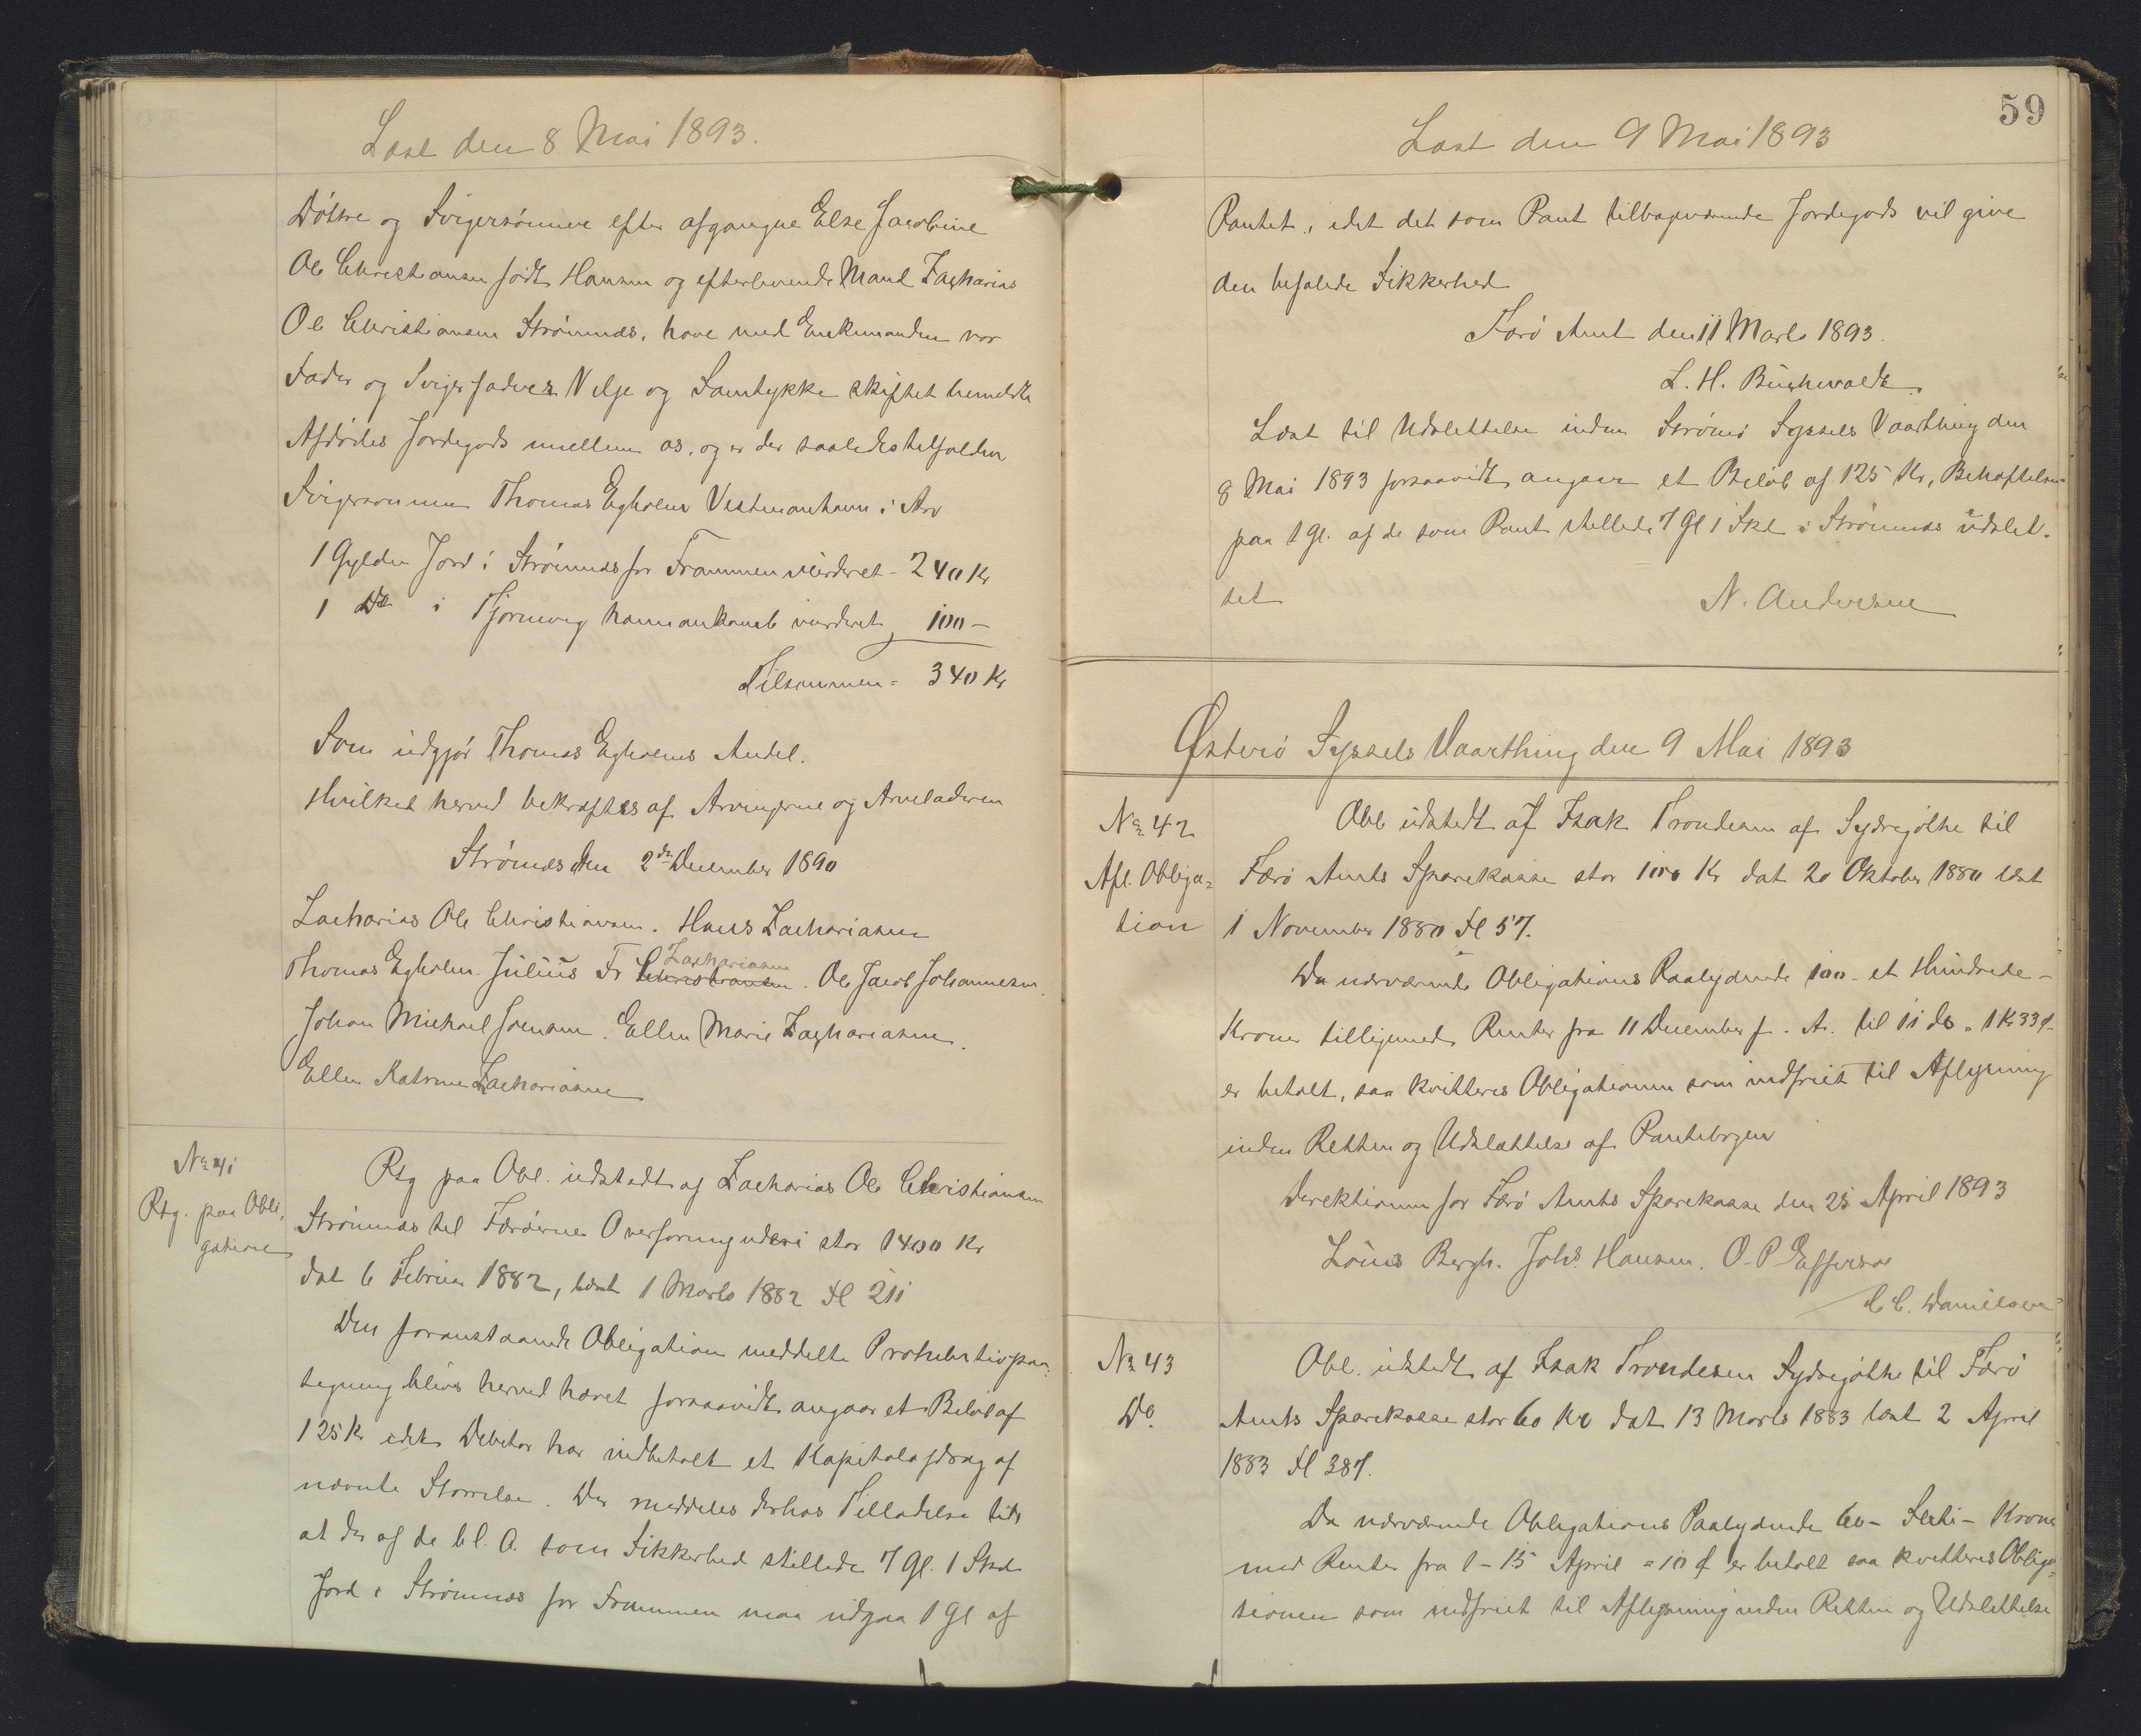 Læst den 8 Mai 1893.
Døttre og Svigersønner efter afgangne Else Jacobine
Ole Christiansen født Hansen og efterlevende Mand Zacharias
Ole Christiansen Strømnæs, have med Enkemanden vor
Fader og Svigerfaders Vilje og Samtykke skiftet bemeldte
Afdødes Jordegods mellem os, og er der saaledes tilfalden
Svigersønnen Thomas Egholm Vestmanhavn i Arv
1 Gylden Jord i Strømnæs for Frammen vurderet - 240 Kr
1 Do i Tjørnevig vurderet 100 -
Tilsammen = 340 Kr
Som udgjør Thomas Egholms Andel.
Hvilket herved bekræftes af Arvingerne og Arveladeren
Strømnæs den 2de December 1890
Zacharias Ole Christiansen. Hans Zachariasen
Thomas Egholm. Julius Fr Christiansen Zachariasen. Ole Jacob Johannesen.
Johan Michael Joensen. Ellen Marie Zachariasen.
Ellen Katrine Zachariasen
No 41
Ptg. paa Obli-
gation
Ptg paa Obl. udstedt af Zacharias Ole Christiansen
Strømnæs til Færøernes Overformynderi stor 1400 Kr
dat 6 Februar 1882, læst 1 Marts 1882 Fl 211
Den foranstaaende Obligation meddelte Prohibitivpaa-
tegning bliver herved hævet forsaavidt angaar et Beløb af
125 Kr idet Debitor har indbetalt et Kapitalafdrag af
nævnte Størrelse. Der meddeles derhos Tilladelse til
at der af de bl. A. som Sikkerhed stillede 7 Gl. 1 Skd
Jord i Strømnæs for Frammen maa udgaa 1 Gl af
59
Læst den 9 Mai 1893
Pantet, idet det som Pant tilbageværende Jordegods vil give
den befalede Sikkerhed
Færø Amt den 11 Marts 1893.
L. H. Buchwaldt.
Læst til Udslettelse inden Strømø Syssels Vaarthing den
8 Mai 1893 forsaavidt angaar et Beløb af 125 Kr, Behæftelsen
paa 1 Gl. af de som Pant stillede 7 Gl 1 Skd i Strømnæs udslet-
tet
N. Andersen
Østerø Syssels Vaarthing den 9 Mai 1893
No 42
Afl. Obliga-
tion
Obl udstedt af Isak Trondesen af Sydregøthe til
Færø Amts Sparekasse stor 100 Kr dat 20 Oktober 1880 læst
1 November 1880 Fl 57.
Da nærværende Obligations Paalydende 100 - et Hundrede -
Kroner tilligemed Renter fra 11 December f. A. til 11 ds = 1 Kr 33 ø
er betalt, saa kvitteres Obligationen som indfriet til Aflysning
inden Retten og Udslættelse af Pantebogen
Direktionen for Færø Amts Sparekasse den 25 April 1893
Louis Bergh. Johs. Hansen. O. P. Effersøe
C. C. Danielsen
No 43
Do.
Obl. udstedt af Isak Trondesen Sydregøthe til Færø
Amts Sparekasse stor 60 Kr dat 13 Marts 1883 læst 2 April
1883 Fl 387.
Da nærværende Obligations Paalydende 60 - Sexti - Kroner
med Renter fra 1 - 15 April = 10 ø er betalt saa kvitteres Obliga-
tionen som indfriet til Aflysning inden Retten og Udslettelse